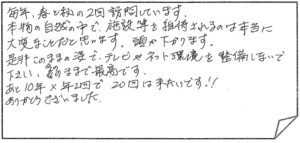 毎年、春と秋の2回訪問しています。
本物の自然の中で、施設等を維持されるのは本当に
大変なことだと思います。頭が下がります。
是非このままの姿で、テレビやネット環境を整備しないで
下さい。今のままで最高です。
あと10年×年2回で20回は来たいです!!
ありがとうございました。